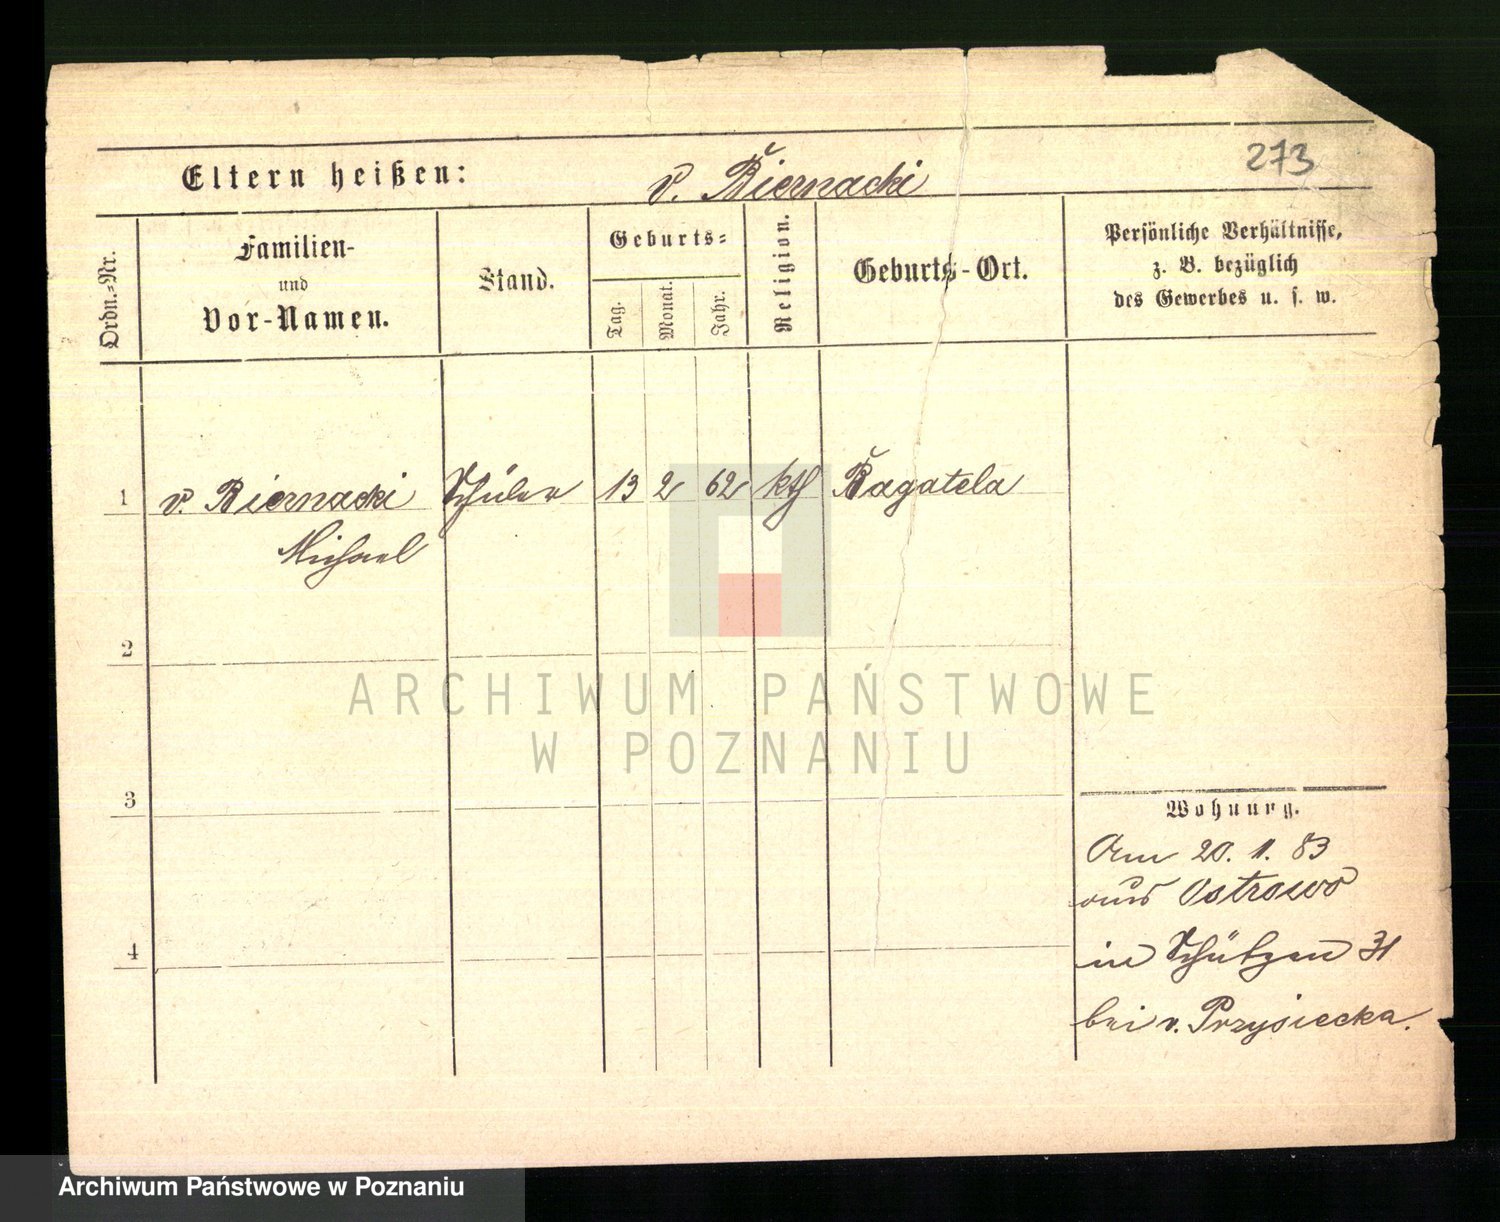 273
Eltern heißen: v. Biernacki
Ordn.-Nr.
Familien-
und
Vor-Namen.
Stand.
Geburts-
Tag.
Monat.
Jahr.
Religion.
Geburts-Ort.
Persönliche Verhältnisse,
z. B. bezüglich
des Gewerbes u. s. w.
1 v. Biernacki Schüler 13 2 62 kth Bagatela
Michael
2
3
4
Wohnung.
Am 20. 1. 83
aus Ostrowo
in Schützen 31
bei v. Przysiecka.
ARCHIWUM PAŃSTWOWE
W POZNANIU
Archiwum Państwowe w Poznaniu